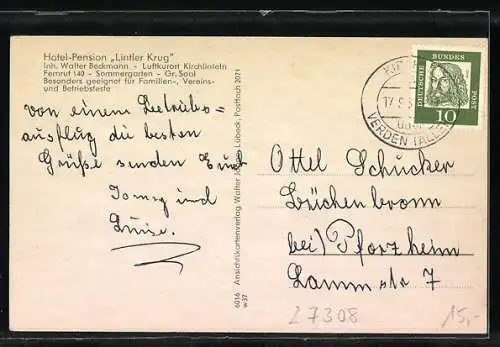 Hotel-Pension „Lintler Krug"
Inh. Walter Beckmann - Luftkurort Kirchlinteln
Fernruf 140 - Sommergarten - Gr. Saal
Besonders geeignet für Familien-, Vereins-
und Betriebsfeste
von einem Betriebs=
ausflug die besten
Grüße senden Euch
und
Luise.
6016 Ansichtkartenverlag Walter Lübeck, Postfach 2071
w37
17.9.
VERDEN (ALLER)
DEUTSCHE BUNDES POST
10
Ottel Schucker
Büchenbronn
bei) Pforzheim
Lamm str 7
L7308
15,-